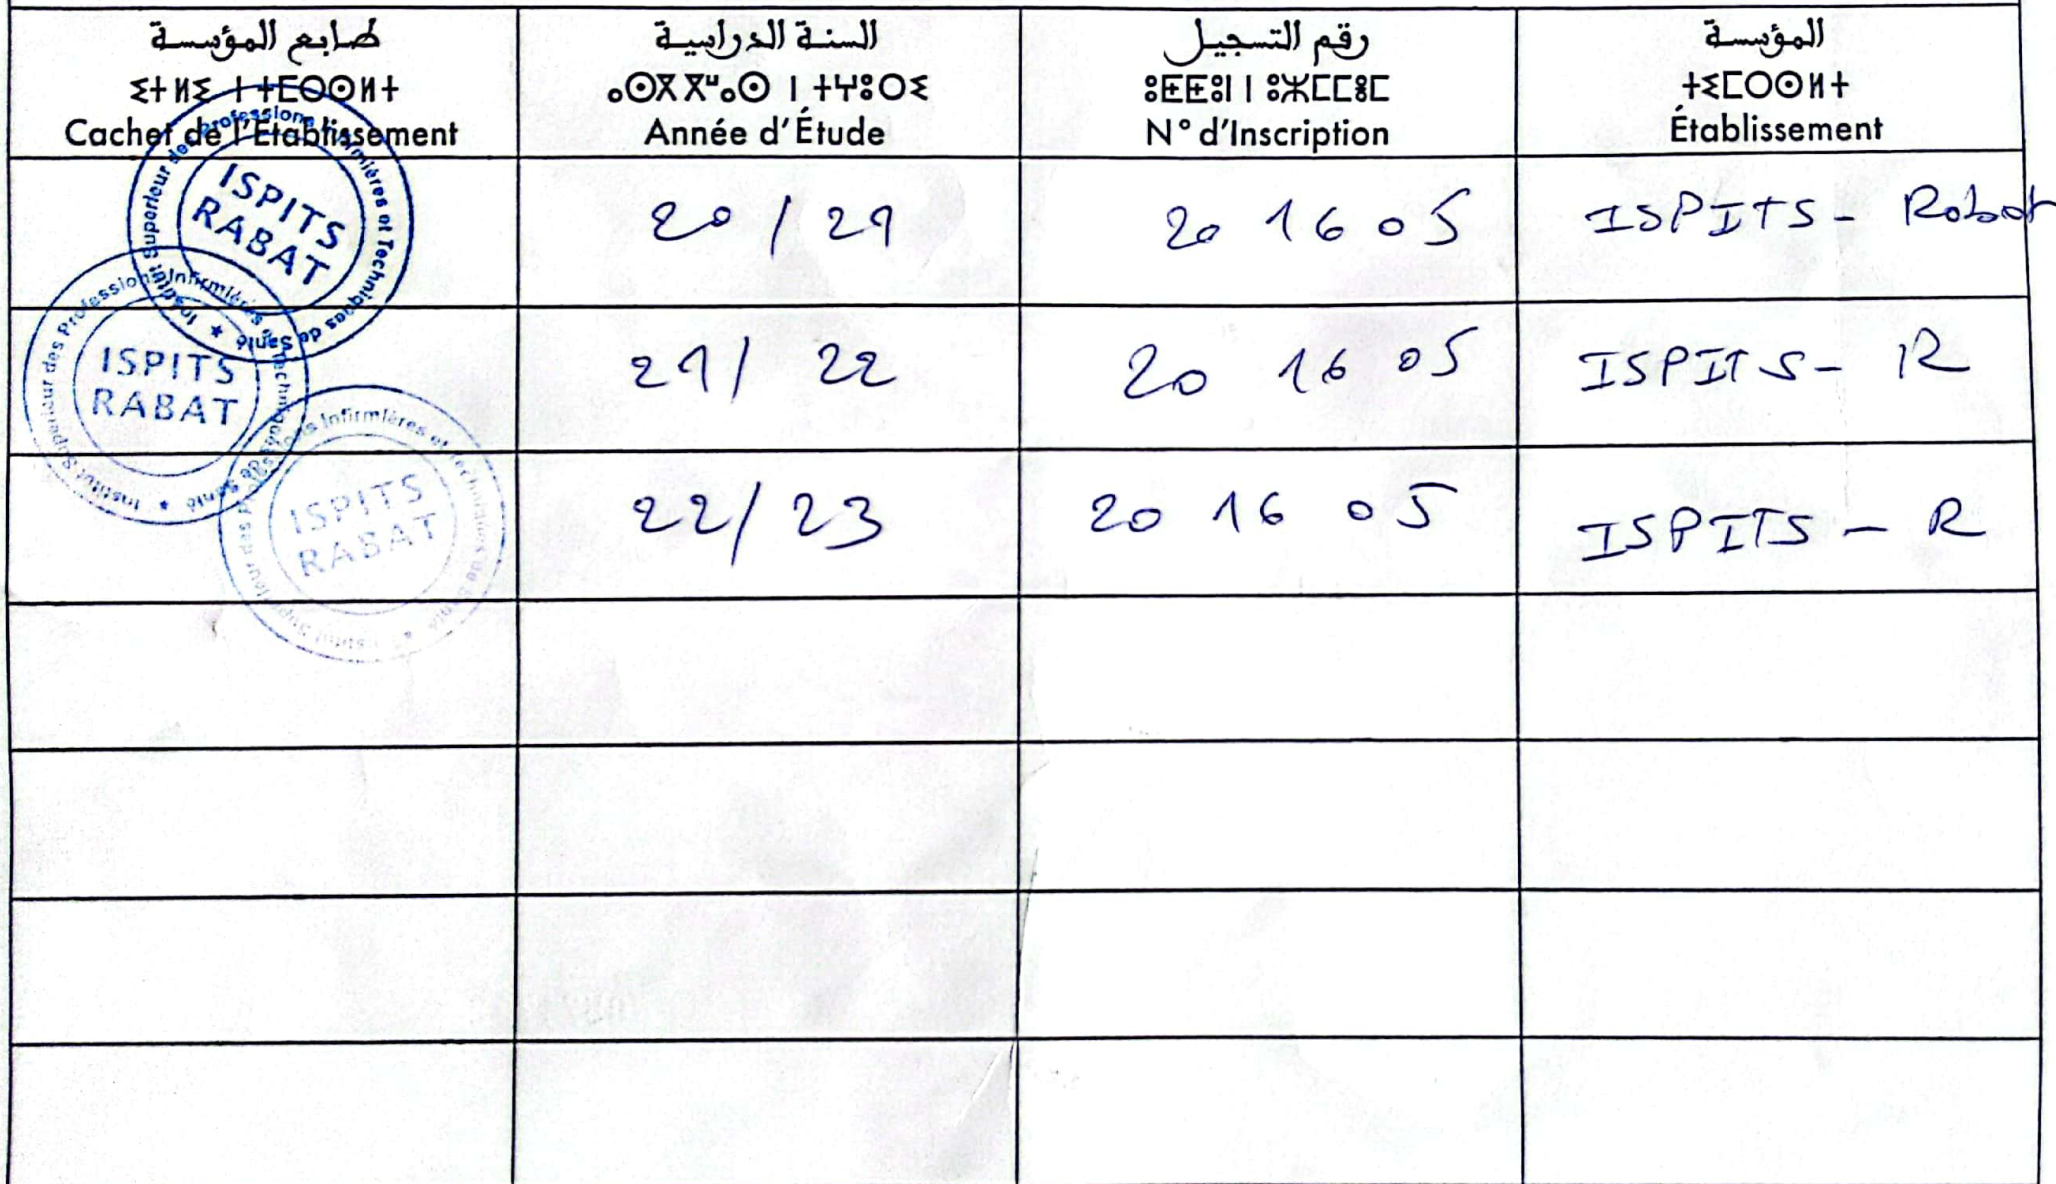 طابع المؤسسة
ⵉⵜⵍⵉ ⵏ ⵜⵎⵔⵙⵍⵜ
Cachet de l'Établissement
السنة الدراسية
ⴰⵙⴳⴳⵯⴰⵙ ⵏ ⵜⵖⵓⵔⵉ
Année d'Étude
رقم التسجيل
ⵓⵟⵟⵓⵏ ⵏ ⵓⵣⵎⵎⵓⵎ
N° d'Inscription
المؤسسة
ⵜⵉⵎⵔⵙⵍⵜ
Établissement
Institut Supérieur des Professions Infirmières et Techniques de Santé
ISPITS
RABAT
20 / 21
20 16 05
ISPITS - Rabat
Institut Supérieur des Professions Infirmières et Techniques de Santé
ISPITS
RABAT
21 / 22
20 16 05
ISPITS - R
Institut Supérieur des Professions Infirmières et Techniques de Santé
ISPITS
RABAT
22 / 23
20 16 05
ISPITS - R